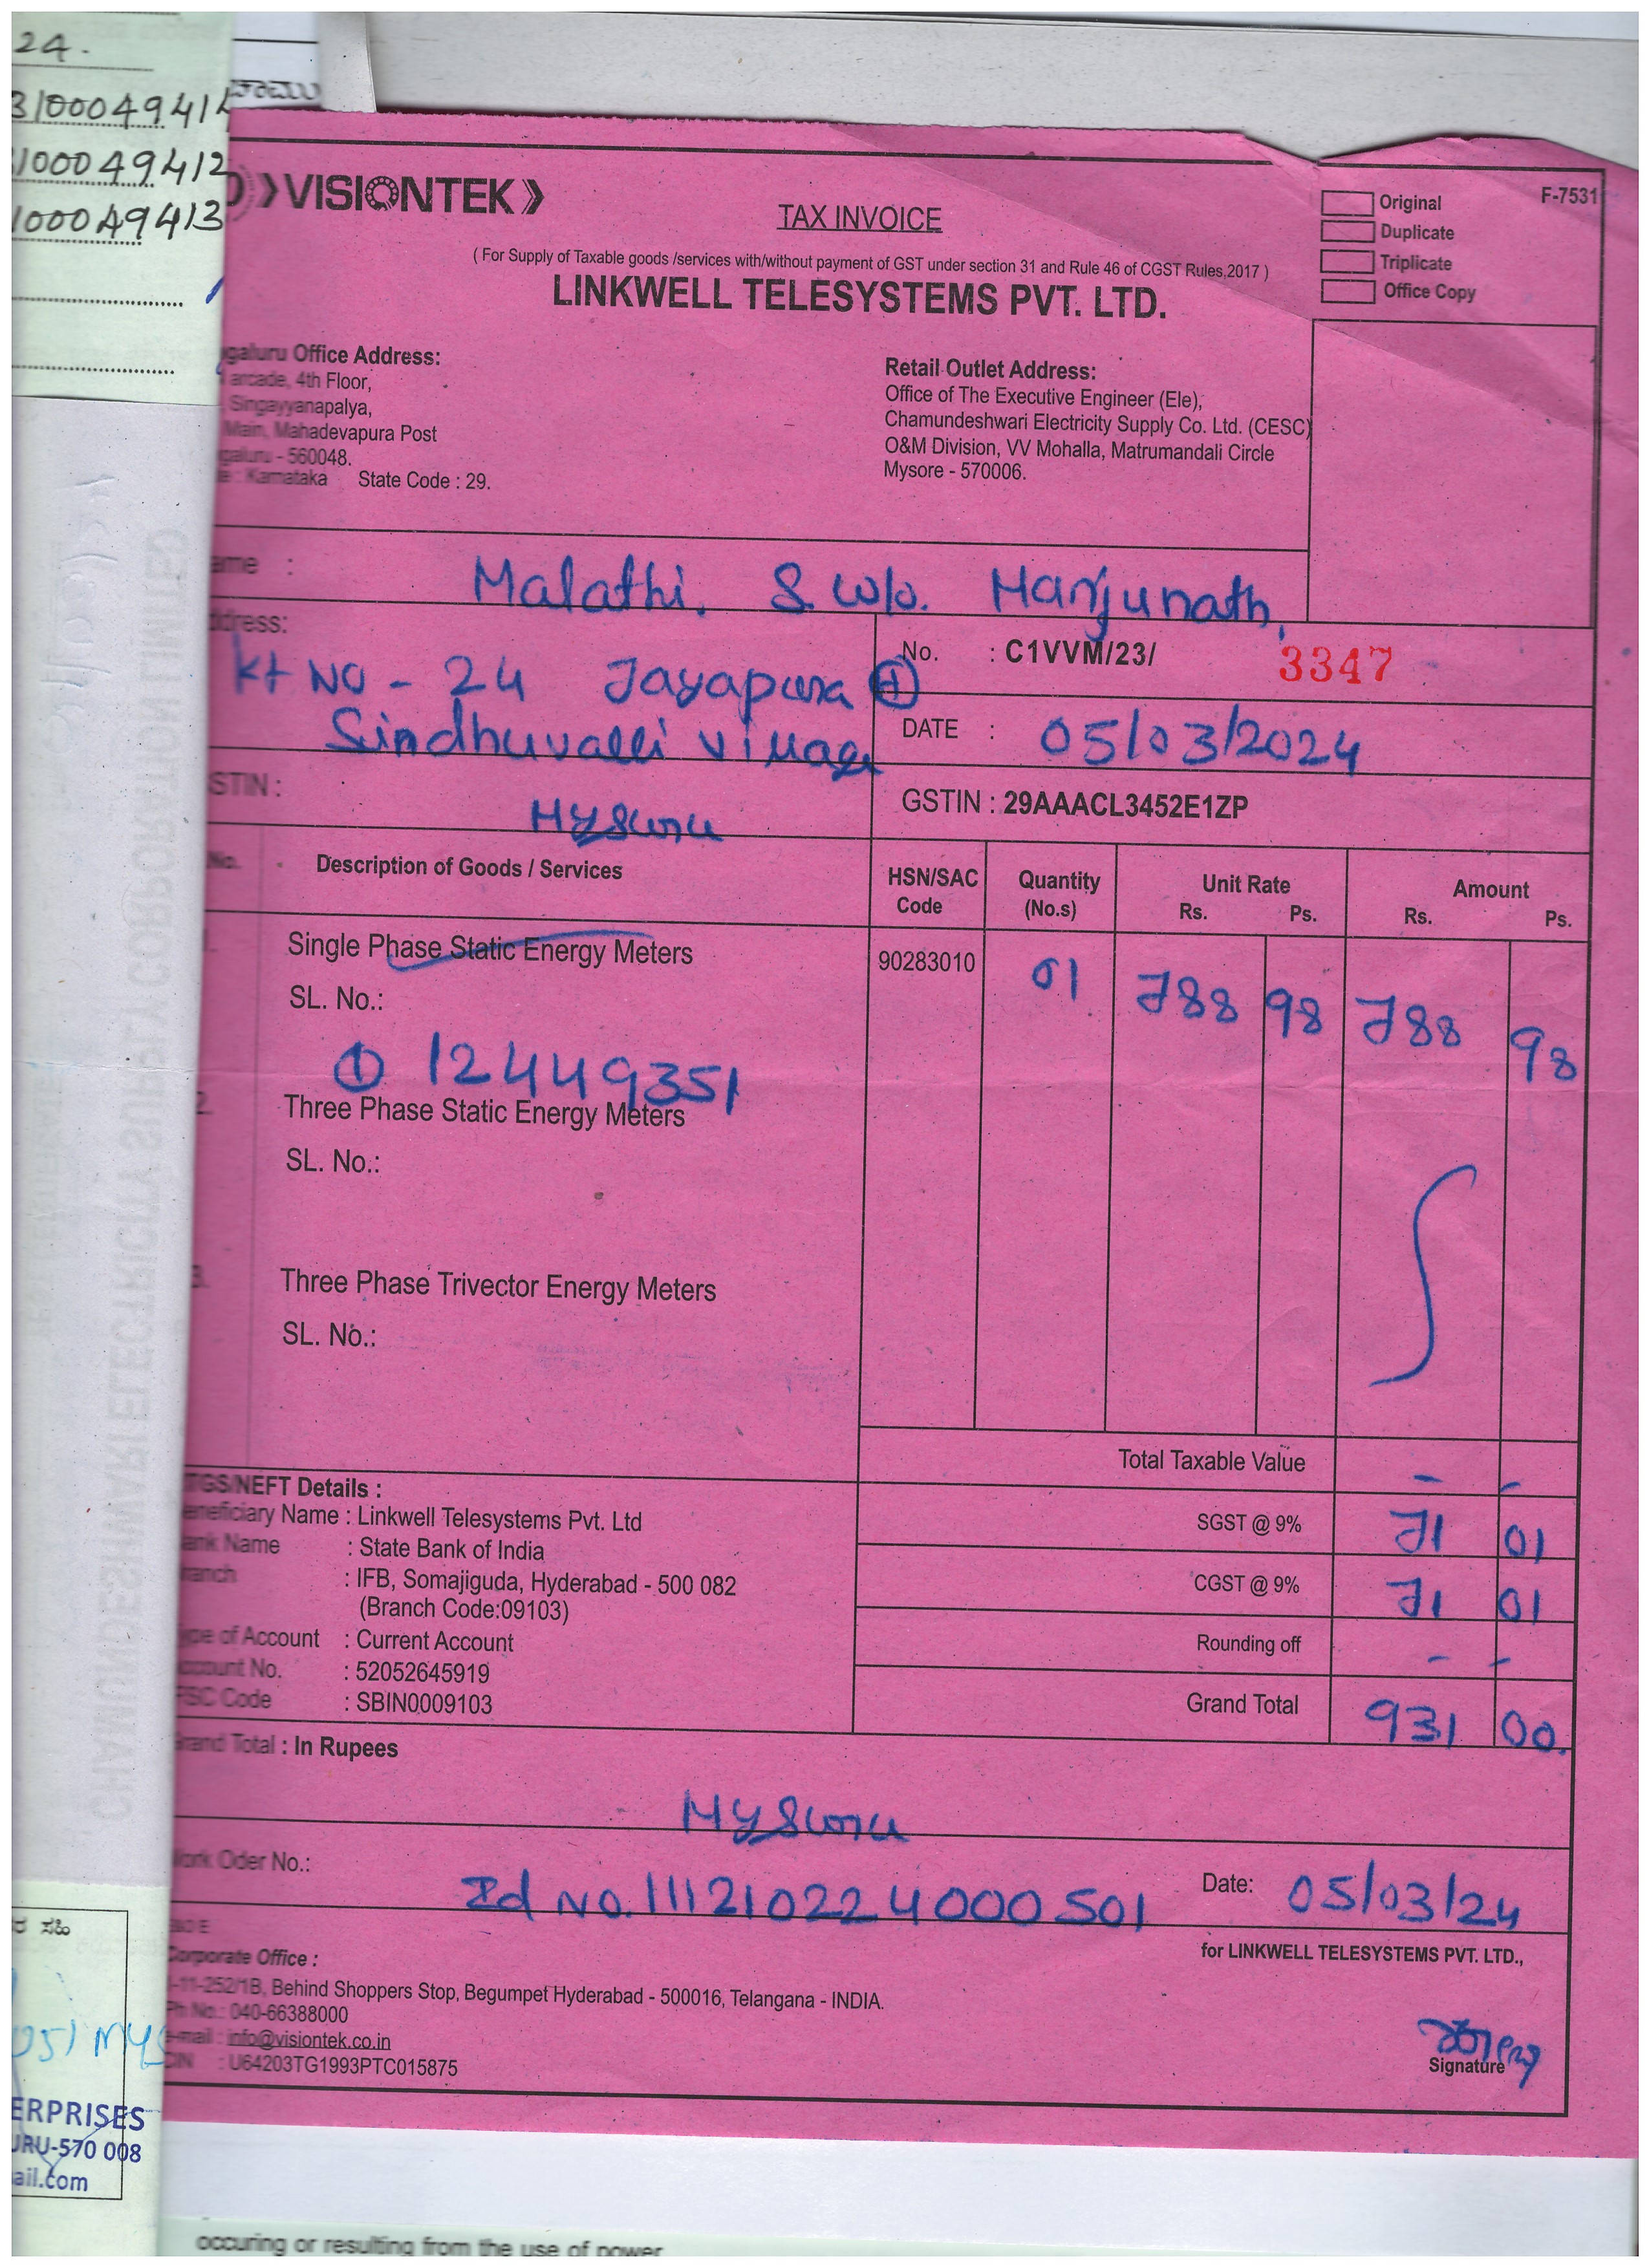 24.
3100049414
100049412
100049413
VISIONTEK
TAX INVOICE
F-7531
Original
Duplicate
Triplicate
Office Copy
( For Supply of Taxable goods /services with/without payment of GST under section 31 and Rule 46 of CGST Rules,2017 )
LINKWELL TELESYSTEMS PVT. LTD.
galuru Office Address:
arcade, 4th Floor,
Singayyanapalya,
Main, Mahadevapura Post
galuru - 560048.
Karnataka State Code : 29.
Retail Outlet Address:
Office of The Executive Engineer (Ele),
Chamundeshwari Electricity Supply Co. Ltd. (CESC)
O&M Division, VV Mohalla, Matrumandali Circle
Mysore - 570006.
ame : Malathi. S. W/o. Manjunath,
ddress:
Kt NO - 24 Jayapura (H)
Sindhuvalli Village
No. : C1VVM/23/ 3347
DATE : 05/03/2024
STIN : Mysuru
GSTIN : 29AAACL3452E1ZP
No. Description of Goods / Services HSN/SAC Code Quantity (No.s) Unit Rate Rs. Ps. Amount Rs. Ps.
1. Single Phase Static Energy Meters 90283010 01 788 98 788 98
SL. No.:
① 12449351
2. Three Phase Static Energy Meters
SL. No.:
3. Three Phase Trivector Energy Meters
SL. No.:
Total Taxable Value - -
SGST @ 9% 71 01
CGST @ 9% 71 01
Rounding off - -
Grand Total 931 00.
TGS/NEFT Details :
eneficiary Name : Linkwell Telesystems Pvt. Ltd
ank Name : State Bank of India
ranch : IFB, Somajiguda, Hyderabad - 500 082
(Branch Code:09103)
ype of Account : Current Account
ccount No. : 52052645919
FSC Code : SBIN0009103
Grand Total : In Rupees
Mysuru
Work Oder No.:
Id NO. 111210224000501
Date: 05/03/24
Corporate Office :
-11-252/1B, Behind Shoppers Stop, Begumpet Hyderabad - 500016, Telangana - INDIA.
Ph No.: 040-66388000
e-mail : info@visiontek.co.in
CIN : U64203TG1993PTC015875
for LINKWELL TELESYSTEMS PVT. LTD.,
Signature
ಸಹಿ
ERPRISES
URU-570 008
ail.com
occuring or resulting from the use of power